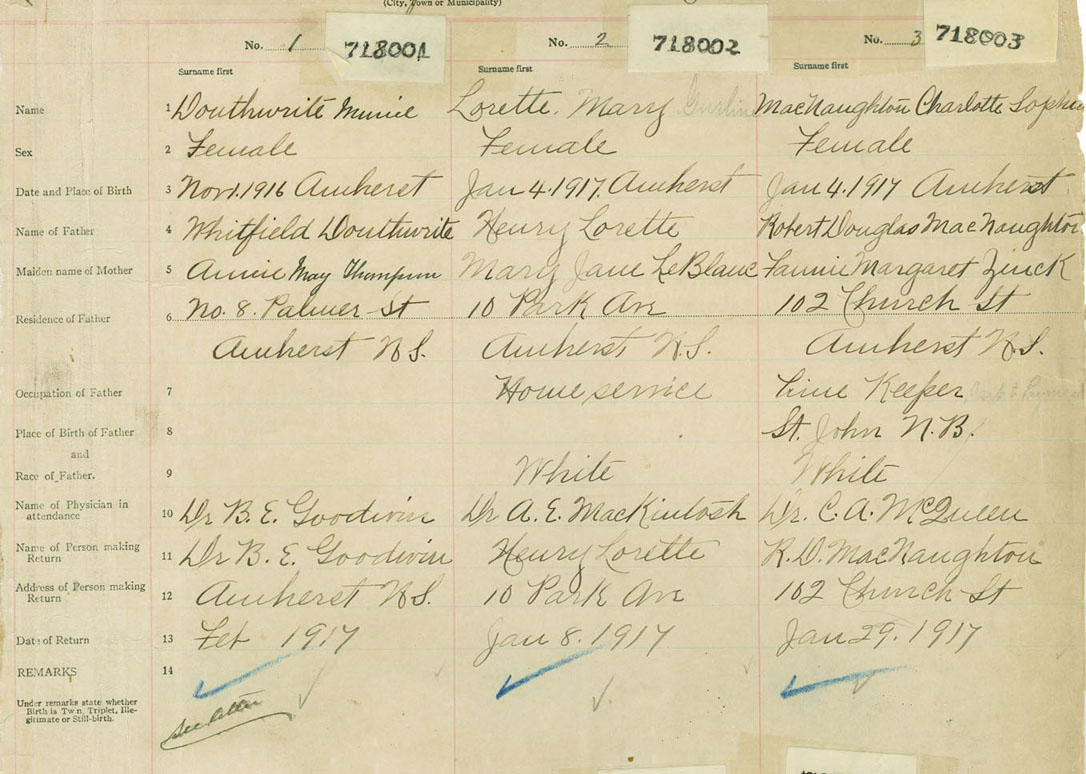 (City, Town or Municipality)
No. 1 718001 No. 2 718002 No. 3 718003
Surname first Surname first Surname first
Name 1 Douthwrite Minnie Lorette. Mary MacNaughton Charlotte Sophie
Sex 2 Female Female Female
Date and Place of Birth 3 Nov. 1916 Amherst Jan 4. 1917. Amherst Jan 4. 1917 Amherst
Name of Father 4 Whitfield Douthwrite Henry Lorette Robert Douglas MacNaughton
Maiden name of Mother 5 Annie May Thompson Mary Jane LeBlanc Fannie Margaret Zinck
Residence of Father 6 No. 8. Palmer St 10 Park Ave 102 Church St
Amherst N.S. Amherst, N.S. Amherst N.S.
Occupation of Father 7 Home service Time Keeper
Place of Birth of Father 8 St. John N.B.
and
Race of Father. 9 White White
Name of Physician in attendance 10 Dr B. E. Goodwin Dr A. E. MacKintosh Dr. C. A. McQueen
Name of Person making Return 11 Dr B. E. Goodwin Henry Lorette R. D. MacNaughton
Address of Person making Return 12 Amherst N.S. 10 Park Ave 102 Church St
Date of Return 13 Feb 1917 Jan 8. 1917 Jan 29. 1917
REMARKS 14
Under remarks state whether
Birth is Twin, Triplet, Ille-
gitimate or Still-birth.
see letter